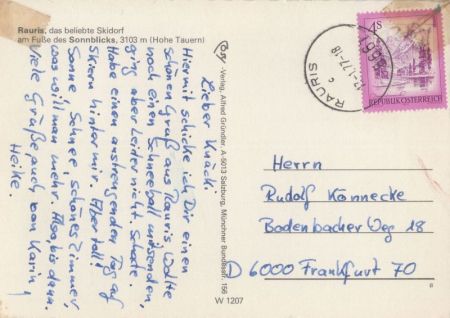 Rauris, das beliebte Skidorf
am Fuße des Sonnblicks, 3103 m (Hohe Tauern)
Lieber Knäck.
Hiermit schicke ich Dir einen
schönen Gruß aus Rauris. Wollte
noch einen Schneeball mitsenden,
ging aber leider nicht. Schade.
Habe einen anstrengenden Tag auf
Skiern hinter mir. Aber toll!
Sonne, Schnee, schönes Zimmer,
was will man mehr. Also, bis dann.
Viele Grüße auch von Karin,
Heike.
Verlag Alfred Gründler, A 5013 Salzburg, Münchner Bundesstr. 156
W 1207
4S
REPUBLIK ÖSTERREICH
RAURIS
5661
Herrn
Rudolf Könnecke
Bodenbacher Weg 18
D 6000 Frankfurt 70